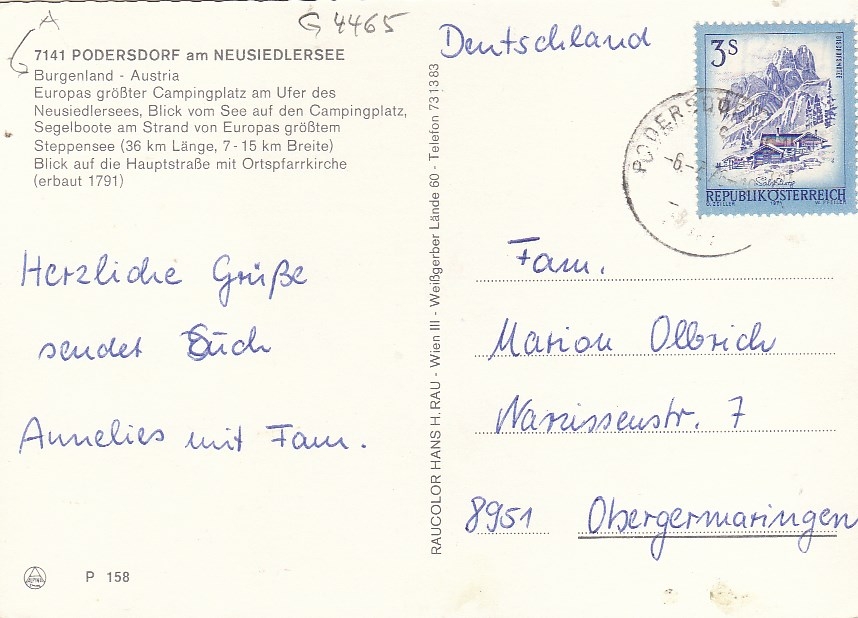 A
G 4465
7141 PODERSDORF am NEUSIEDLERSEE
Burgenland - Austria
Europas größter Campingplatz am Ufer des
Neusiedlersees, Blick vom See auf den Campingplatz,
Segelboote am Strand von Europas größtem
Steppensee (36 km Länge, 7-15 km Breite)
Blick auf die Hauptstraße mit Ortspfarrkirche
(erbaut 1791)
Herzliche Grüße
sendet Euch
Annelies mit Fam.
P 158
RAUCOLOR HANS H. RAU - Wien III - Weißgerber Lände 60 - Telefon 73 13 83
Deutschland
3S
REPUBLIK ÖSTERREICH
PODERSDORF
Fam.
Marion Olbrich
Narzissenstr. 7
8951 Obergermaringen